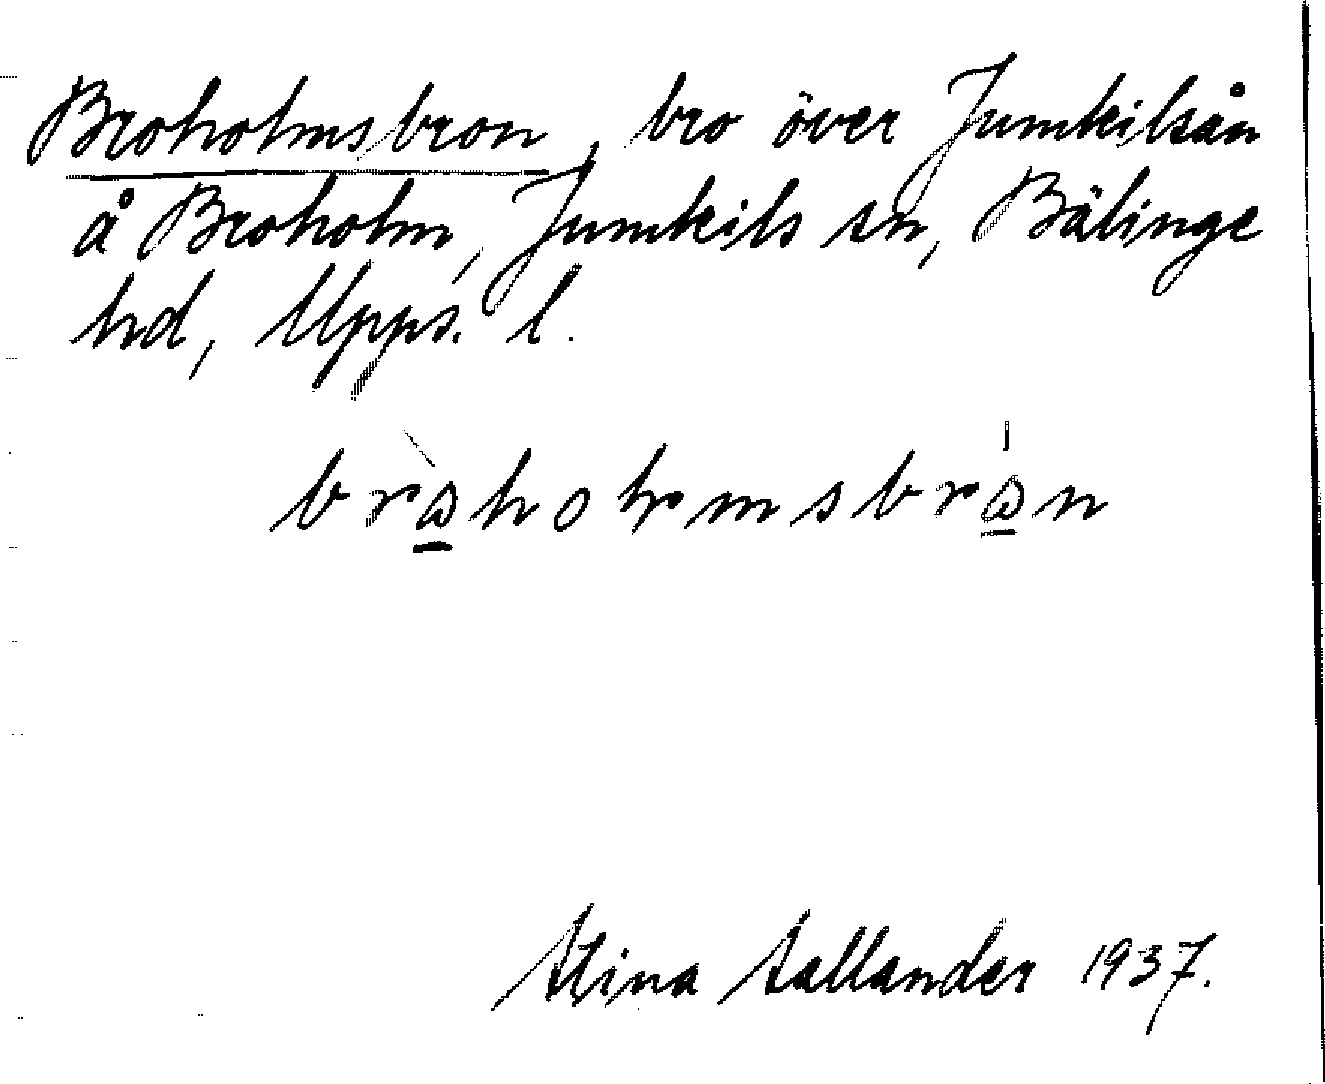 Broholmsbron, bro över Jumkilsån
å Broholm, Jumkils sn, Bälinge
hd, Upps. l.
Stina Sallander 1937.